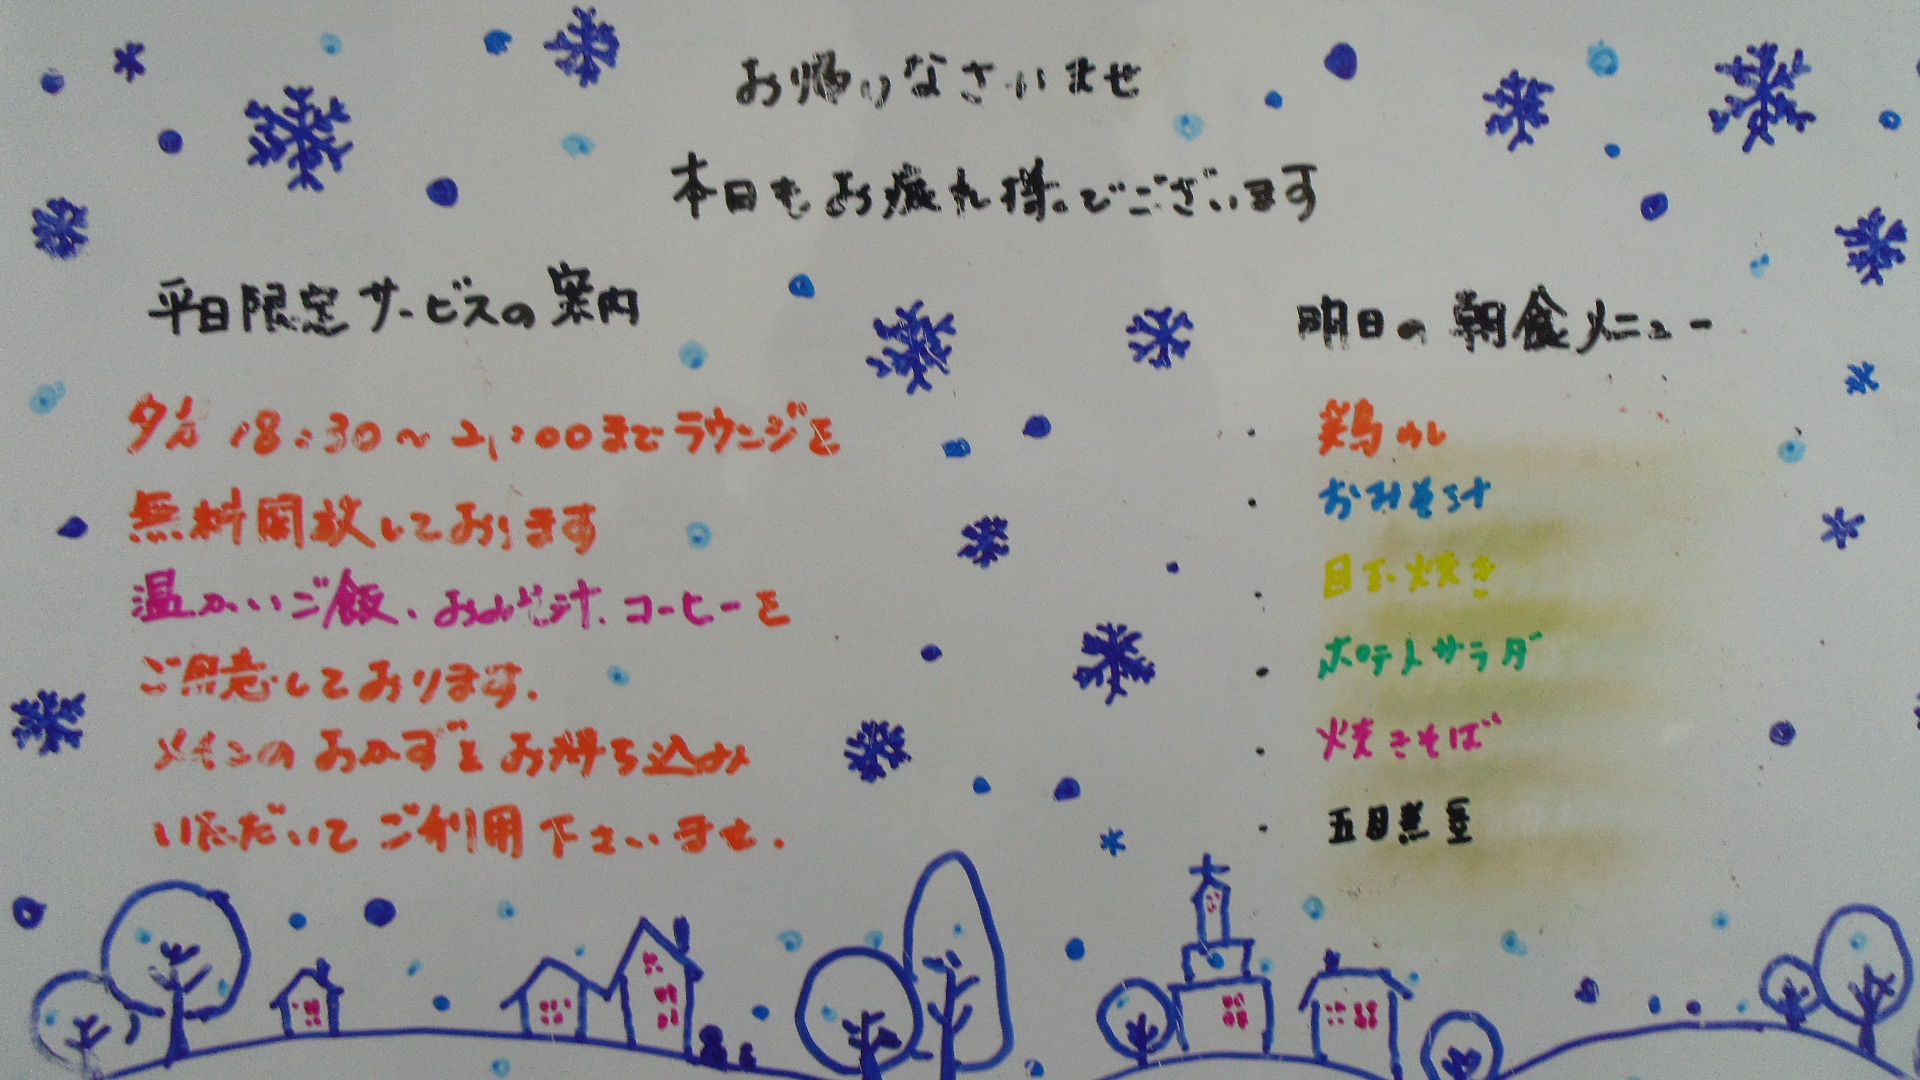 お帰りなさいませ
本日もお疲れ様でございます
平日限定サービスの案内
夕方 18:30～21:00までラウンジを
無料開放しております
温かいご飯、おみそ汁、コーヒーを
ご用意しております.
メインのおかずをお持ち込み
いただいてご利用下さいませ.
明日の朝食メニュー
・
・おみそ汁
・目玉焼き
・ポテトサラダ
・焼きそば
・五目煮豆